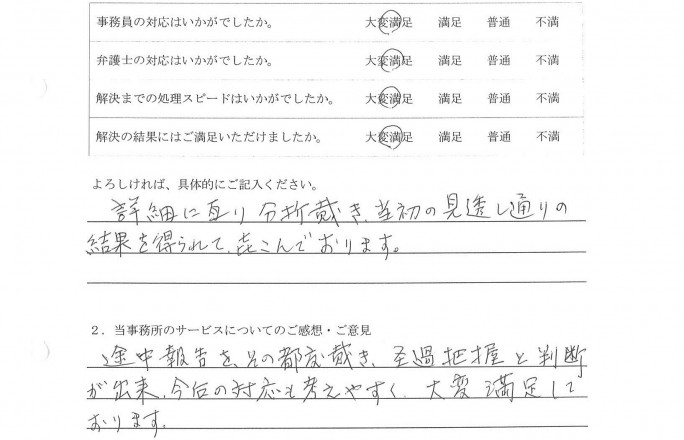 事務員の対応はいかがでしたか。 大変満足 満足 普通 不満
弁護士の対応はいかがでしたか。 大変満足 満足 普通 不満
解決までの処理スピードはいかがでしたか。 大変満足 満足 普通 不満
解決の結果にはご満足いただけましたか。 大変満足 満足 普通 不満
よろしければ、具体的にご記入ください。
詳細に亘り分析戴き、当初の見透し通りの
結果を得られて、喜こんでおります。
2．当事務所のサービスについてのご感想・ご意見
途中報告を、その都度戴き、経過把握と判断
が出来、今后の対応も考えやすく、大変満足して
おります。